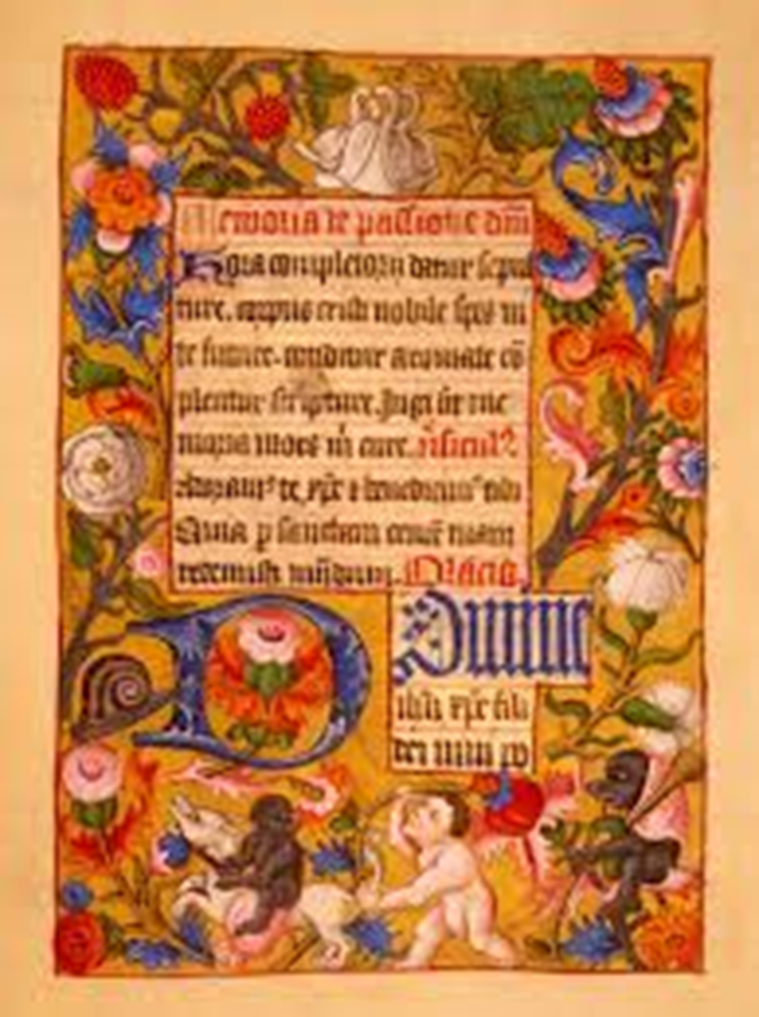 Memoria de passione dm̄
Hora completorii datur sepul
ture. corpus cristi nobile spes vi
te future. conditur aromate cō
plentur scripture. Jugi sit me
moria mors m̄ cure.
Adoramꝰ te xp̄e ⁊ benedicimꝰ tibi
Quia p sanctam crucē tuam
redemisti mūdum. Oratio.
Domine
ihū xp̄e fili
dei viui po